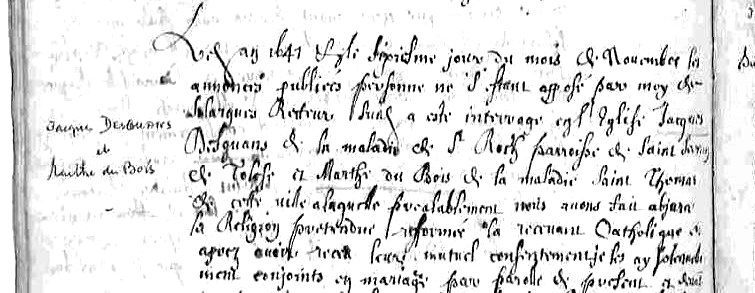 Jacques Desguans
et
Marthe du Bois
L'an 1641 & le sixiesme jour du mois de Novembre les
annonces publiées personne ne s'estant opposé par moy de
Recteur a esté interrogé en l'Eglise Jacques
Desguans de la maladie de St Roch parroisse de Saint
de Tolose et Marthe du Bois de la maladie Saint Thomas
de ceste ville a laquelle prealablement nous avons fait abjurer
la Religion pretendue reformée la recevant Catholique &
apres avoir receu leur mutuel consentement je les ay solemnelle
ment conjoints en mariage par parole de present et